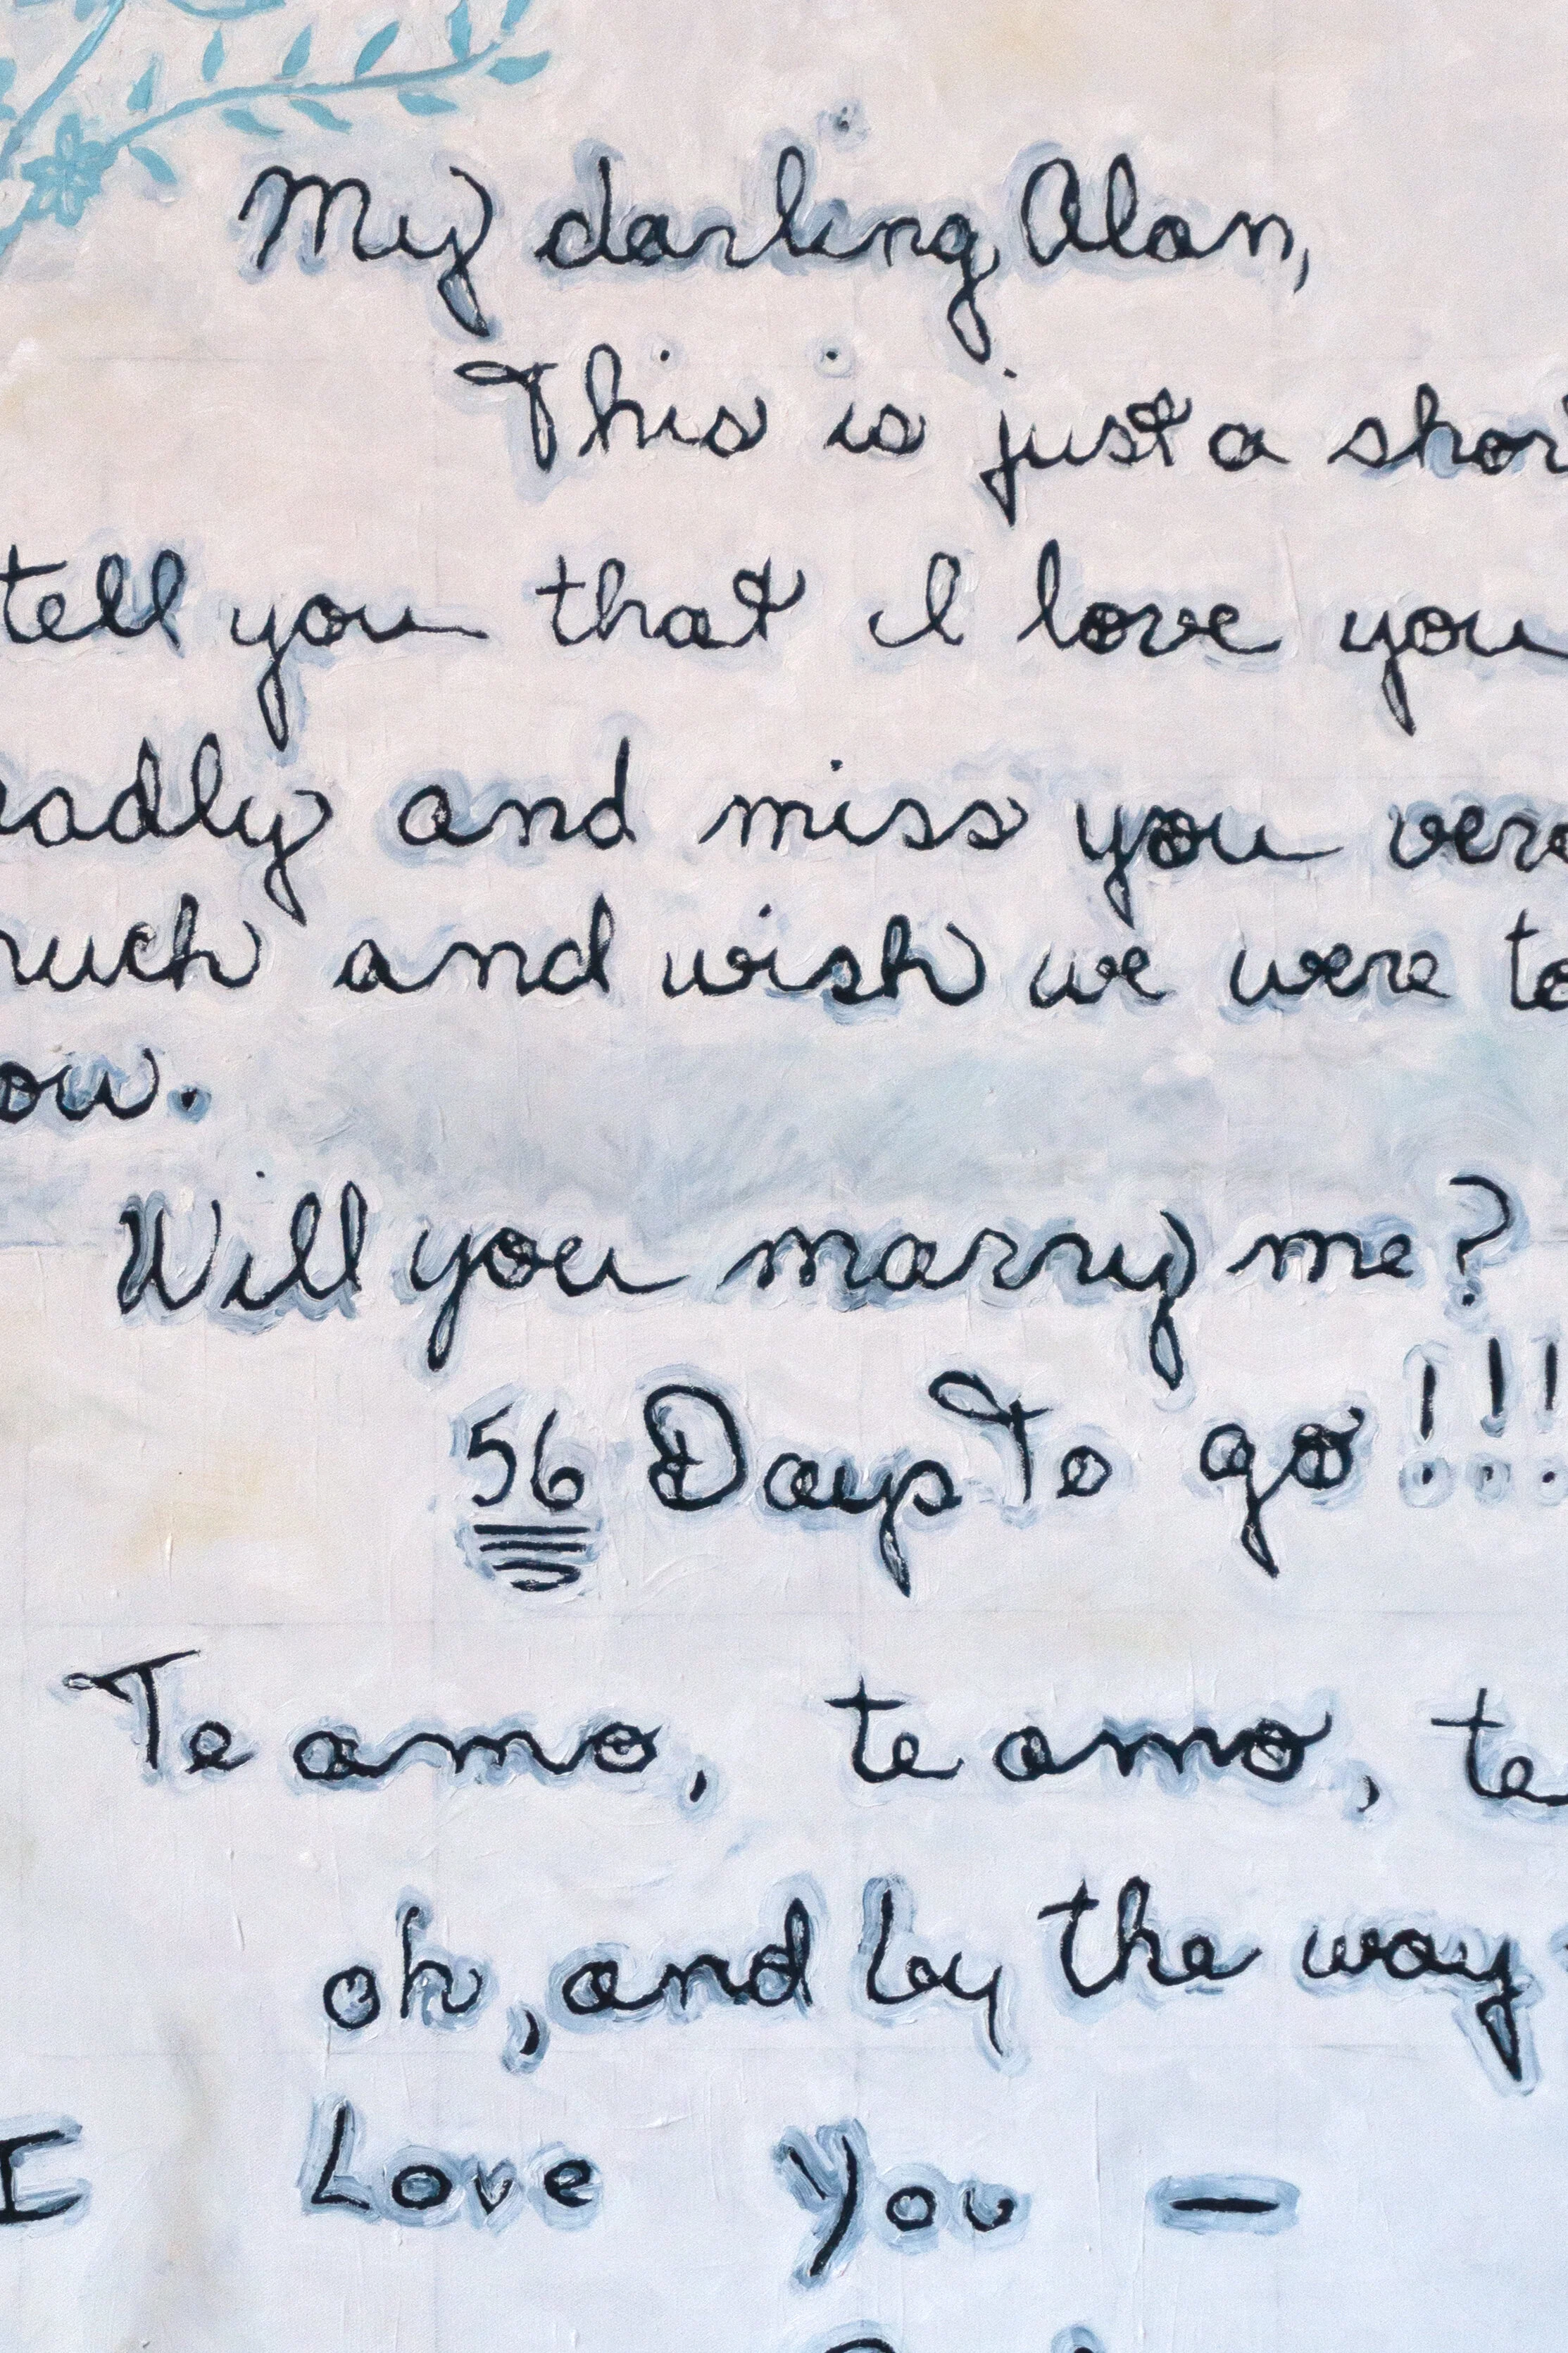 My darling Alan,
This is just a shor
tell you that I love you
eadly and miss you very
much and wish we were to
ow.
Will you marry me?
56 Days To go!!!
Te amo, te amo, te
oh, and by the way
I Love You —